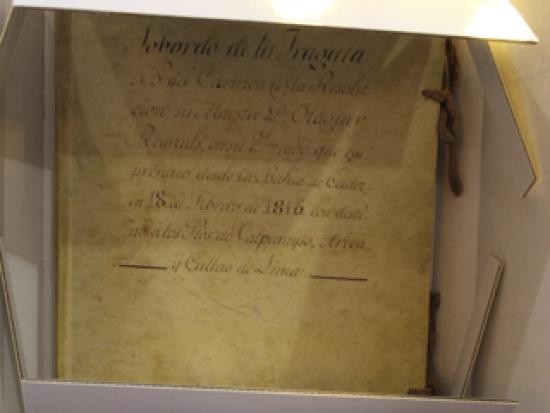 Sobordo de la Fragata
N.S. del Carmen (a) la Resolu
cion, su Maestre D.
en su que em
prendio desde la bahia de Cadiz
en 18 de Febrero de 1816 con desti
no a los Ptos de Valparayso, Arica,
y Callao de Lima